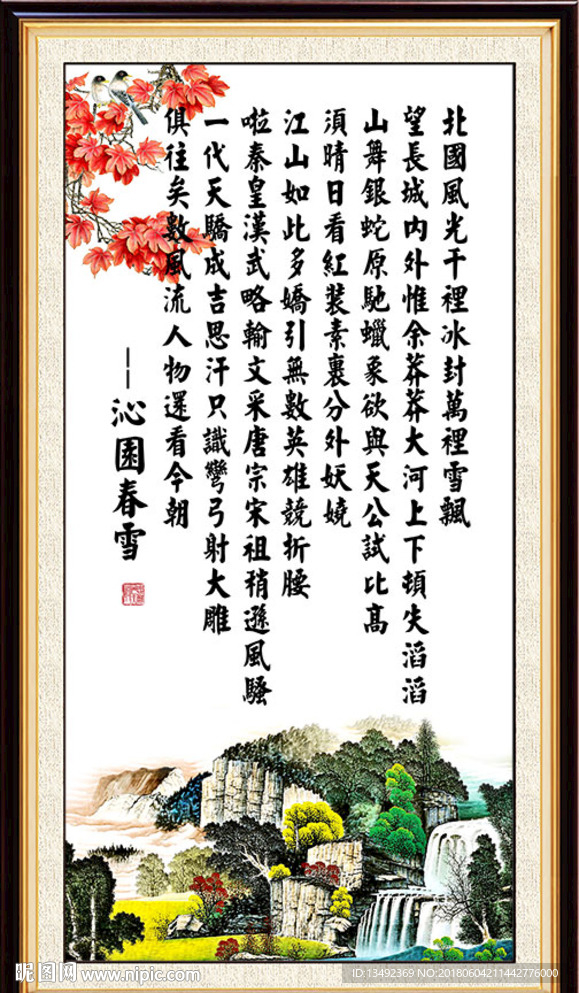 北國風光千裡冰封萬裡雪飄
望長城內外惟余莽莽大河上下頓失滔滔
山舞銀蛇原馳蠟象欲與天公試比高
須晴日看紅裝素裹分外妖嬈
江山如此多嬌引無數英雄競折腰
啦秦皇漢武略輸文采唐宗宋祖稍遜風騷
一代天驕成吉思汗只識彎弓射大雕
俱往矣數風流人物還看今朝
——沁園春雪
昵图网 www.nipic.com
ID:13492369 NO:20180604211442776000